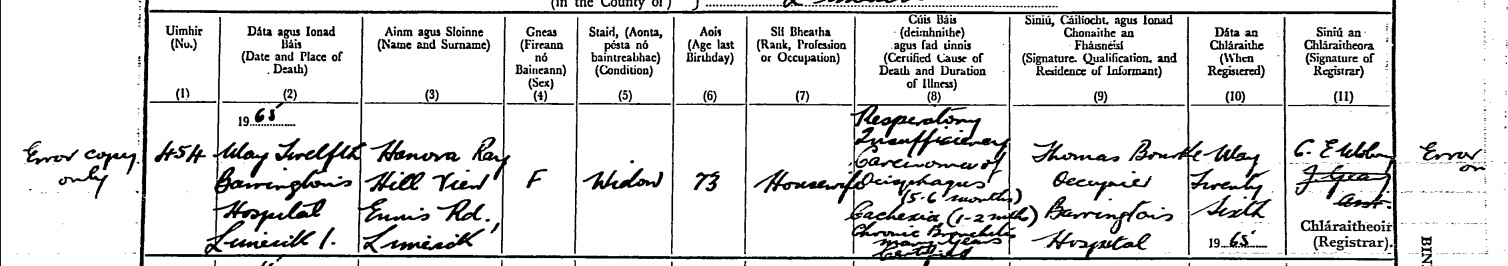 (in the County of)
Uimhir
(No.)
(1)
Dáta agus Ionad
Báis
(Date and Place of
Death)
(2)
Ainm agus Sloinne
(Name and Surname)
(3)
Gneas
(Fireann
nó
Baineann)
(Sex)
(4)
Staid, (Aonta,
pósta nó
baintreabhac)
(Condition)
(5)
Aois
(Age last
Birthday)
(6)
Slí Bheatha
(Rank, Profession
or Occupation)
(7)
Cúis Báis
(deimhnithe)
agus fad tinnis
(Certified Cause of
Death and Duration
of Illness)
(8)
Siniú, Cáilíocht, agus Ionad
Chonaithe an
Fhásnéisí
(Signature, Qualification, and
Residence of Informant)
(9)
Dáta an
Chláraithe
(When
Registered)
(10)
Siniú an
Chláraitheora
(Signature of
Registrar)
(11)
Error copy
only
454
1965
May Twelfth
Barrington's
Hospital
Limerick 1.
Hanora Ray
Hill View
Ennis Rd.,
Limerick
F
Widow
73
Housewife
Respiratory
Insufficiency
Carcinoma of
Oesophagus
(5-6 months)
Cachexia (1-2 mths)
Chronic Bronchitis
many years
Certified
Thomas Bourke
Occupier
Barrington's
Hospital
May
Twenty
Sixth
1965
C. E
J. Geary
Asst.
Chláraitheoir
(Registrar).
Error
on
BIN